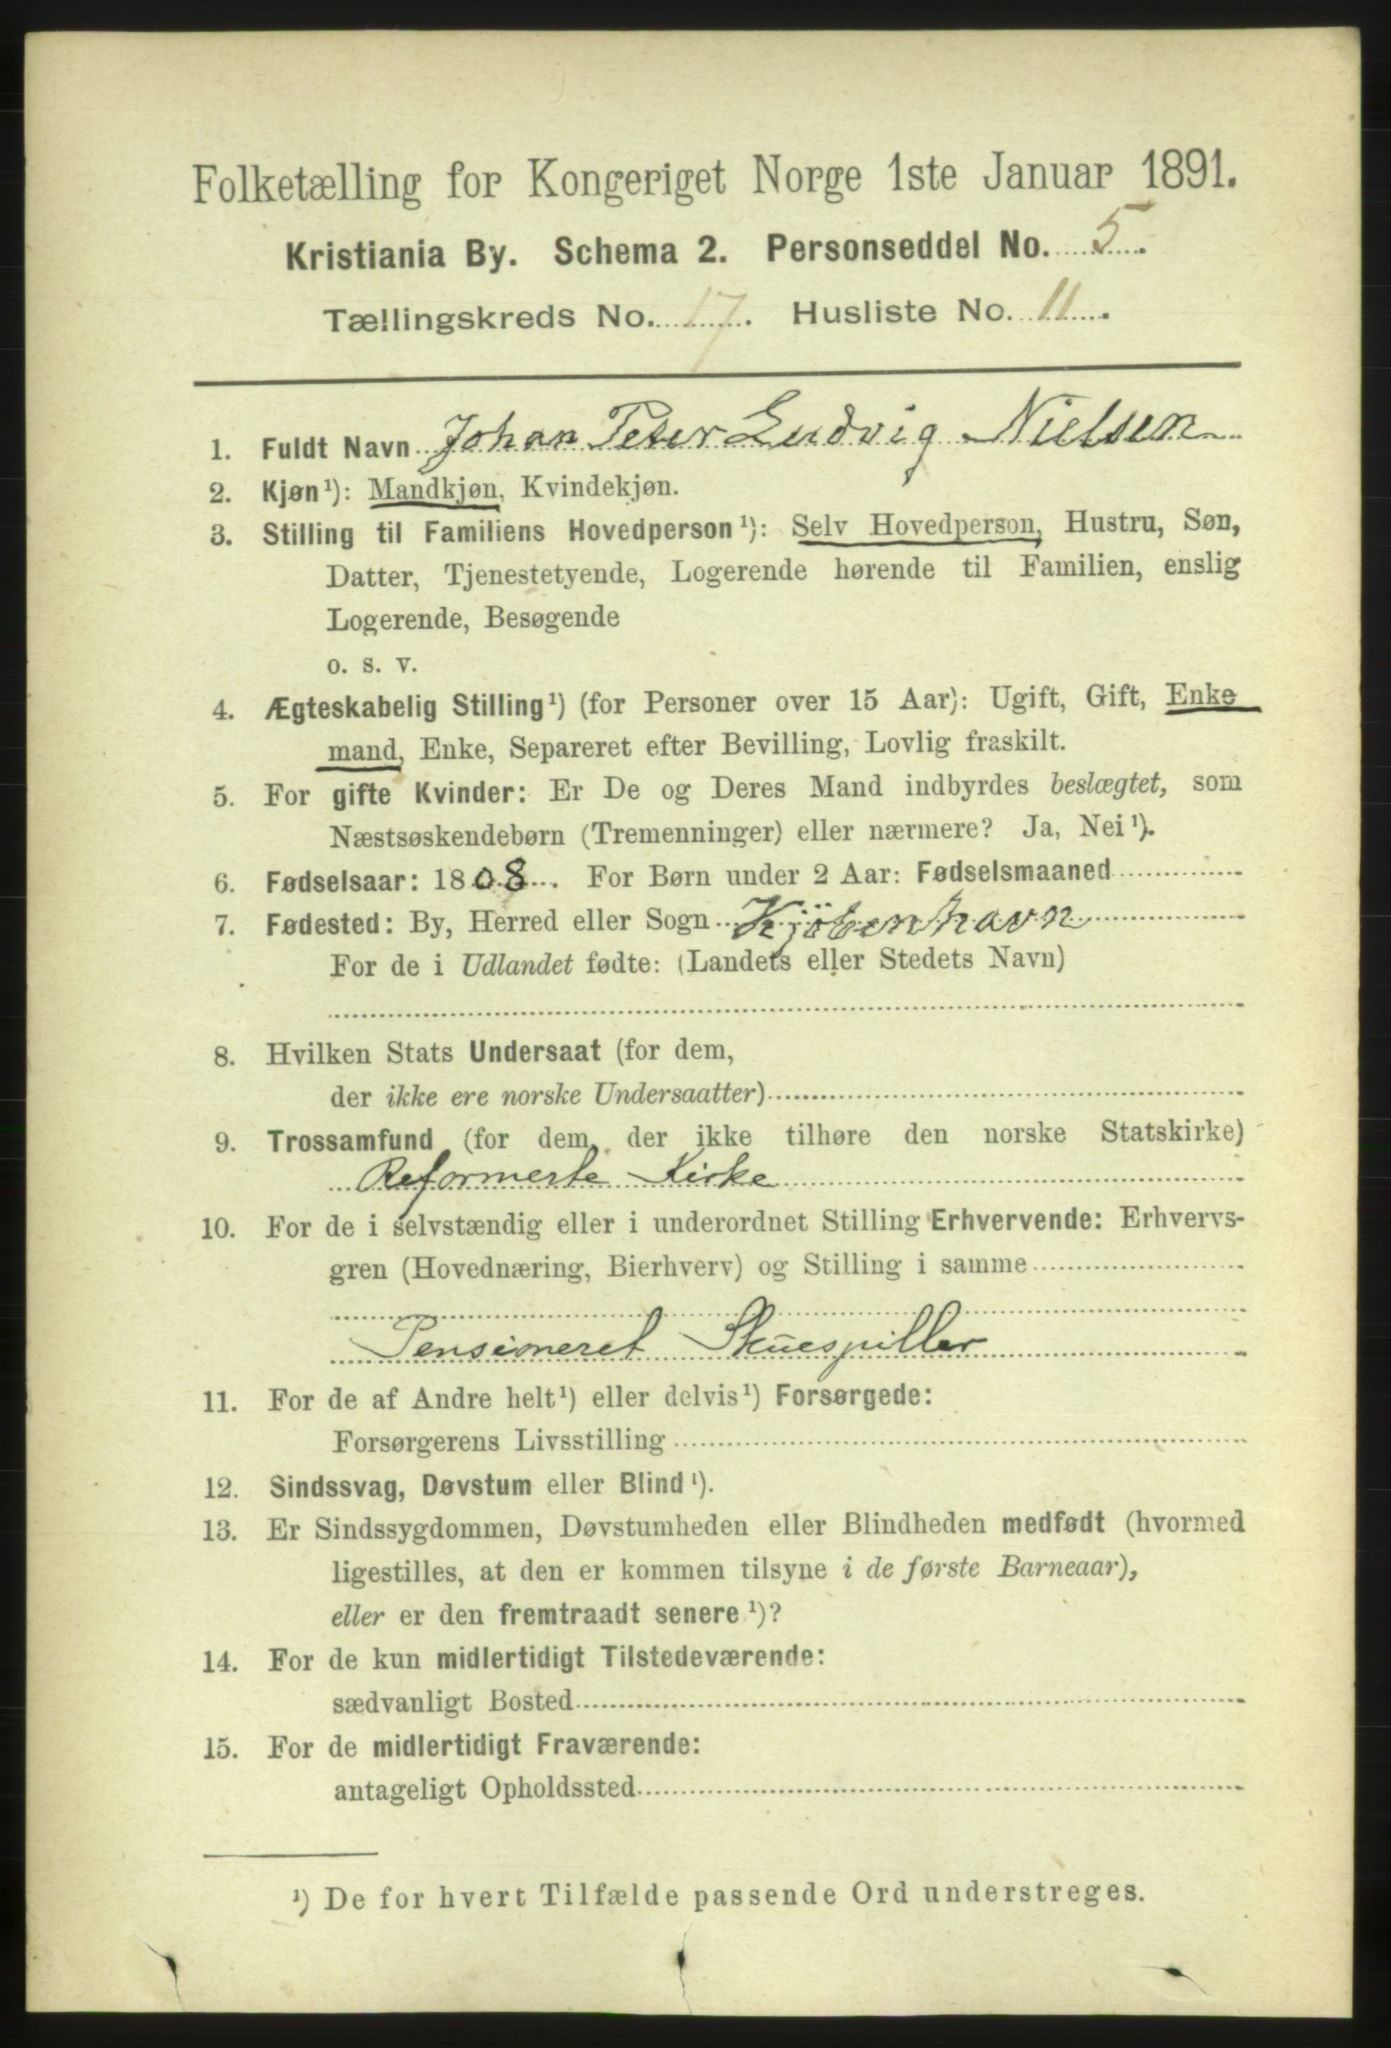 Folketælling for Kongeriget Norge 1ste Januar 1891.
Kristiania By. Schema 2. Personseddel No. 5.
Tællingskreds No. 17. Husliste No. 11.
1. Fuldt Navn Johan Peter Ludvig Nielsen
2. Kjøn¹): Mandkjøn, Kvindekjøn.
3. Stilling til Familiens Hovedperson¹): Selv Hovedperson, Hustru, Søn,
Datter, Tjenestetyende, Logerende hørende til Familien, enslig
Logerende, Besøgende
o. s. v.
4. Ægteskabelig Stilling¹) (for Personer over 15 Aar): Ugift, Gift, Enke
mand, Enke, Separeret efter Bevilling, Lovlig fraskilt.
5. For gifte Kvinder: Er De og Deres Mand indbyrdes beslægtet, som
Næstsøskendebørn (Tremenninger) eller nærmere? Ja, Nei¹).
6. Fødselsaar: 1808. For Børn under 2 Aar: Fødselsmaaned
7. Fødested: By, Herred eller Sogn Kjöbenhavn
For de i Udlandet fødte: (Landets eller Stedets Navn)
8. Hvilken Stats Undersaat (for dem,
der ikke ere norske Undersaatter)
9. Trossamfund (for dem, der ikke tilhøre den norske Statskirke)
Reformerte Kirke
10. For de i selvstændig eller i underordnet Stilling Erhvervende: Erhvervs-
gren (Hovednæring, Bierhverv) og Stilling i samme
Pensioneret Skuespiller
11. For de af Andre helt¹) eller delvis¹) Forsørgede:
Forsørgerens Livsstilling
12. Sindssvag, Døvstum eller Blind¹).
13. Er Sindssygdommen, Døvstumheden eller Blindheden medfødt (hvormed
ligestilles, at den er kommen tilsyne i de første Barneaar),
eller er den fremtraadt senere¹)?
14. For de kun midlertidigt Tilstedeværende:
sædvanligt Bosted
15. For de midlertidigt Fraværende:
antageligt Opholdssted
¹) De for hvert Tilfælde passende Ord understreges.